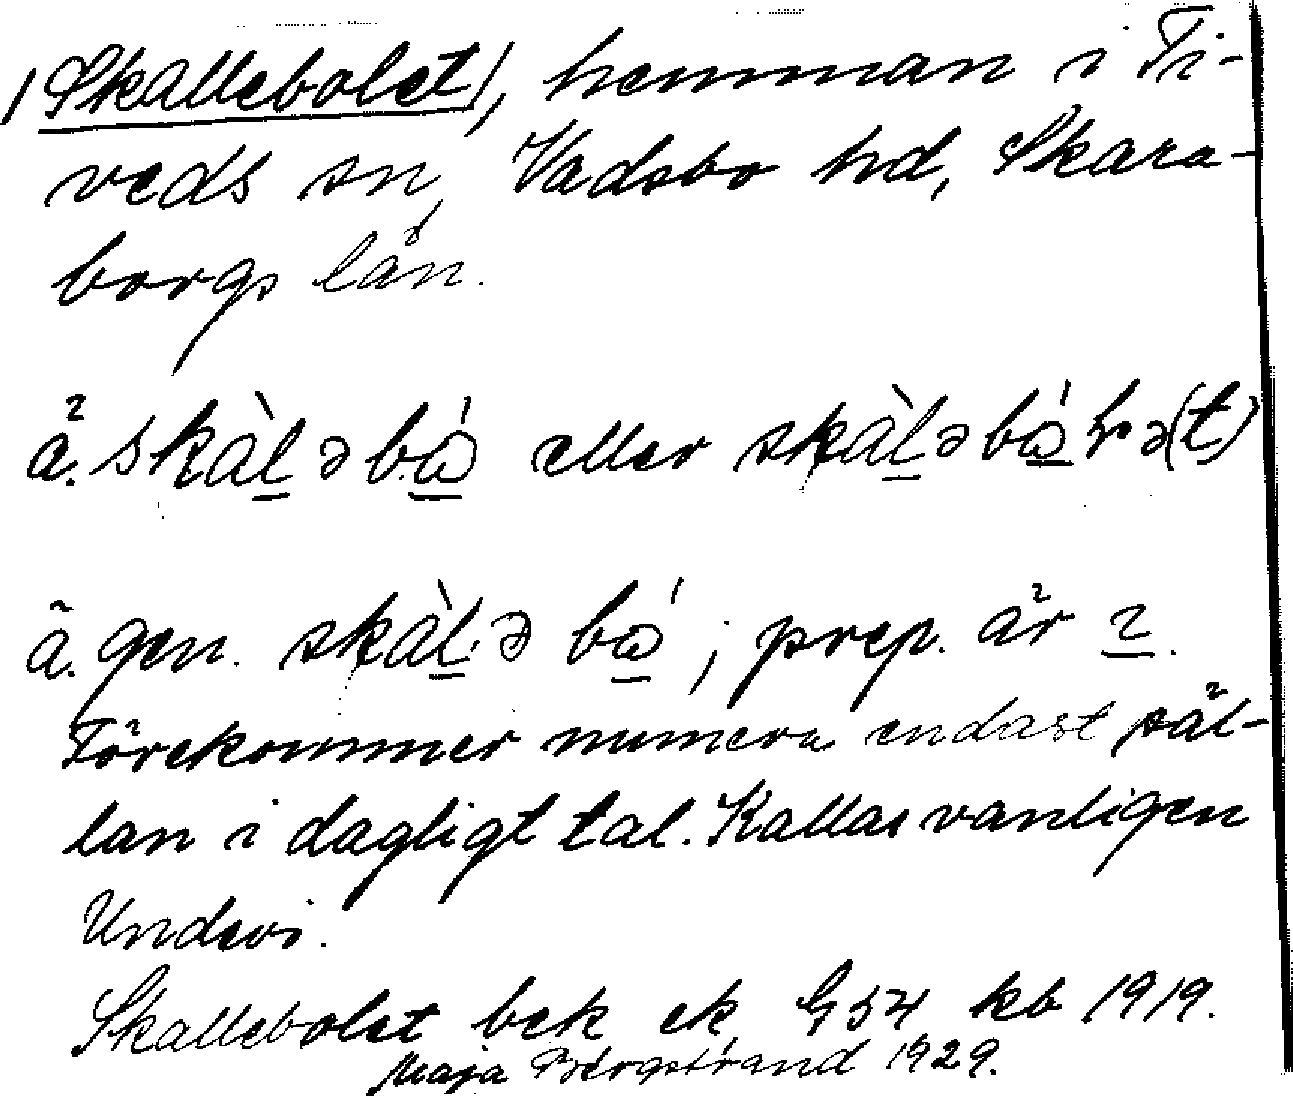 /Skallebolet/, hemman i Ti-
veds sn, Vadsbo hd, Skara-
borgs län.
ä. skàl̲əbá̲ eller skàl̲əbá̲ɽə(t̲)
ä. gen. skàl̲ə bá̲; prep. är ı̲.
Förekommer numera endast säl-
lan i dagligt tal. Kallas vanligen
Undevi.
Skallebolet bek ek G 54 kb 1919.
Maja Bergstrand 1929.